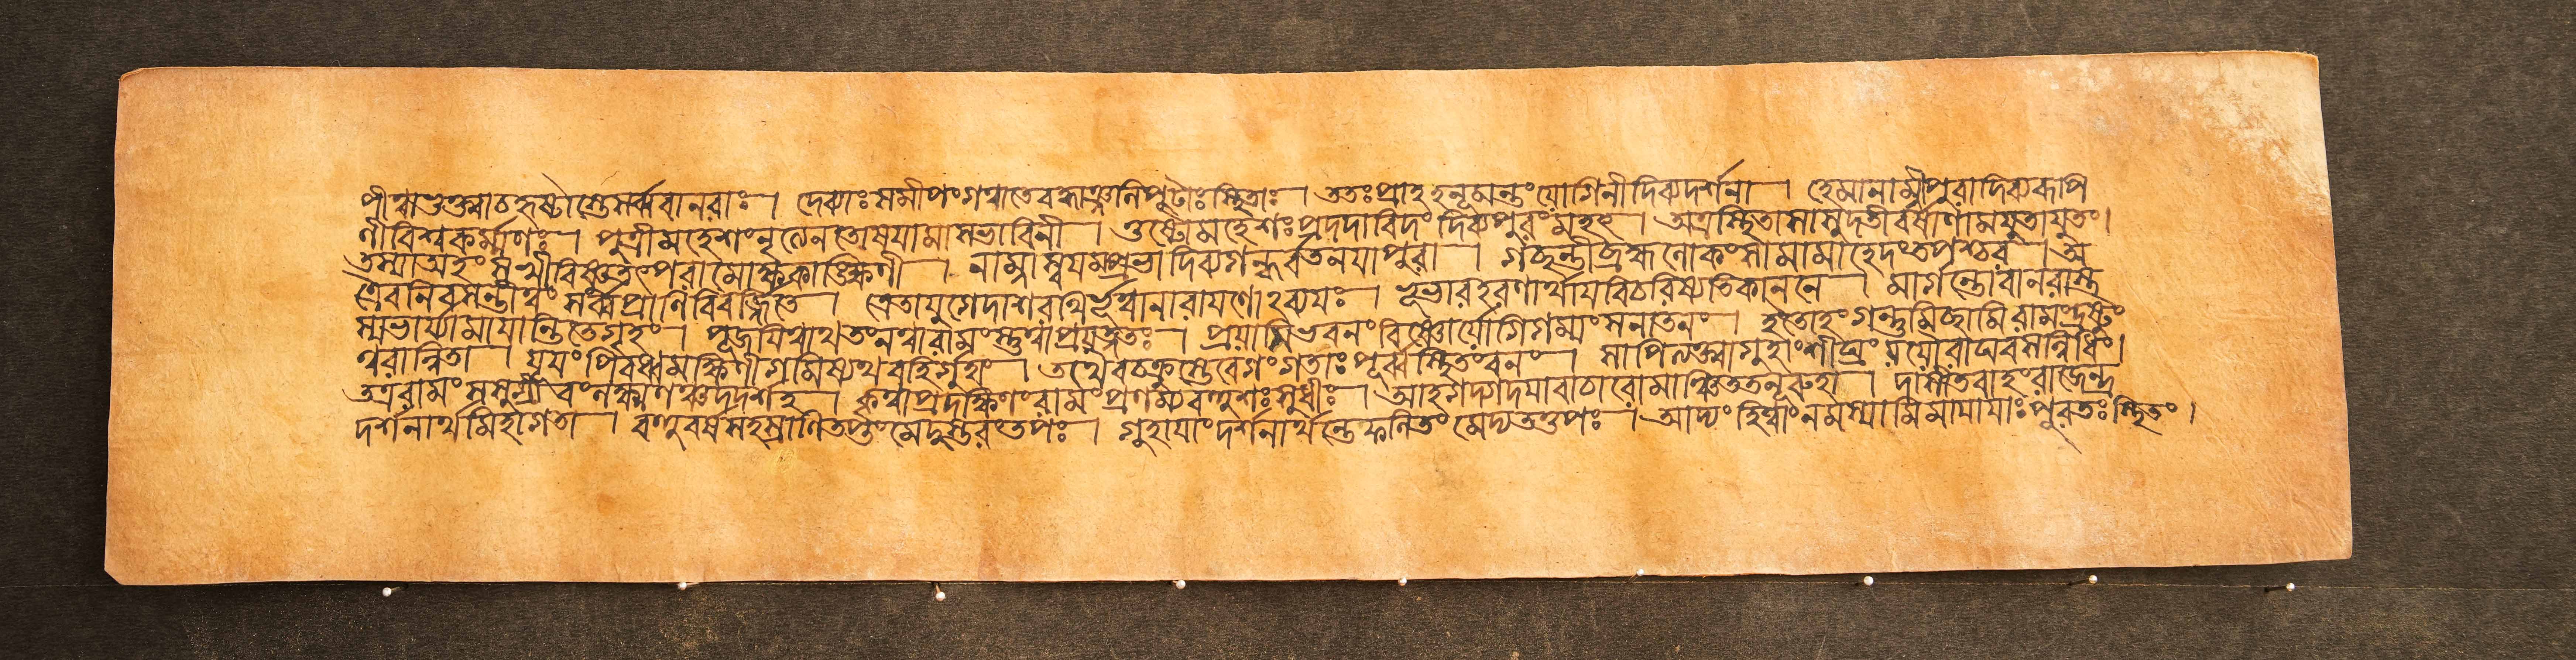 পীত্বাভুক্ত্বাচহৃষ্টাস্তেসর্ব্ববানরাঃ। দেব্যাঃসমীপংগত্বাতেবদ্ধাঞ্জলিপুটাঃস্থিতাঃ। ততঃপ্রাহহনূমন্তংযোগিনীদিব্যদর্শনা। হেমানাম্নীপুরাদিব্যরূপি
ণীবিশ্বকর্ম্মণঃ। পুত্রীমহেশংনৃত্যেনতোষয়ামাসভাবিনী। তুষ্টোমহেশঃপ্রদদাবিদংদিব্যপুরংমহৎ। অত্রস্থিতাসাসুদতীবর্ষাণামযুতাযুতং।
তস্যাঅহংসখীবিষ্ণুতৎপরামোক্ষকাঙ্ক্ষিণী। নাম্নাস্বয়ম্প্রভাদিব্যগন্ধর্ব্বতনয়াপুরা। গচ্ছন্তীব্রহ্মলোকংসামামাহেদংতপশ্চর। অ
ত্রৈবনিবসন্তীত্বংসর্ব্বপ্রাণিবিবর্জ্জিতে। ত্রেতাযুগেদাশরথির্ভূত্বানারায়ণোঽব্যয়ঃ। ভূভারহরণার্থায়বিচরিষ্যতিকাননে। মার্গন্তোবানরাস্ত
স্যভার্য্যামায়ান্তিতেগৃহং। পূজয়িত্বাথতংনত্বারামংস্তুত্বাপ্রযত্নতঃ। প্রয়াসিভবনংবিষ্ণোর্যোগিগম্যংসনাতনং। ইতোহংগন্তুমিচ্ছামিরামংদ্রষ্টুং
ত্বরান্বিতা। যূয়ংপিবধ্বমক্ষিণীগমিষ্যথবহির্গুহাং। তথৈবচক্রুস্তেবেগংগতাঃপূর্ব্বস্থিতংবনং। সাপিত্যক্ত্বাগুহাংশীঘ্রংযযৌরাঘবসন্নিধিং।
তত্ররামংসসুগ্রীবংলক্ষ্মণঞ্চদদর্শহ। কৃত্বাপ্রদক্ষিণংরামংপ্রণম্যবহুশঃসুধীঃ। আহগদ্গদয়াবাচারোমাঞ্চিততনূরুহা। দাসীতবাহংরাজেন্দ্র
দর্শনার্থমিহাগতা। বহুবর্ষসহস্রাণিতপ্তংমেদুস্তরংতপঃ। গুহায়াংদর্শনার্থন্তেফলিতংমেদ্যতত্তপঃ। আদ্যংহিত্বাংনমস্যামিমায়ায়াঃপুরতঃস্থিতং।